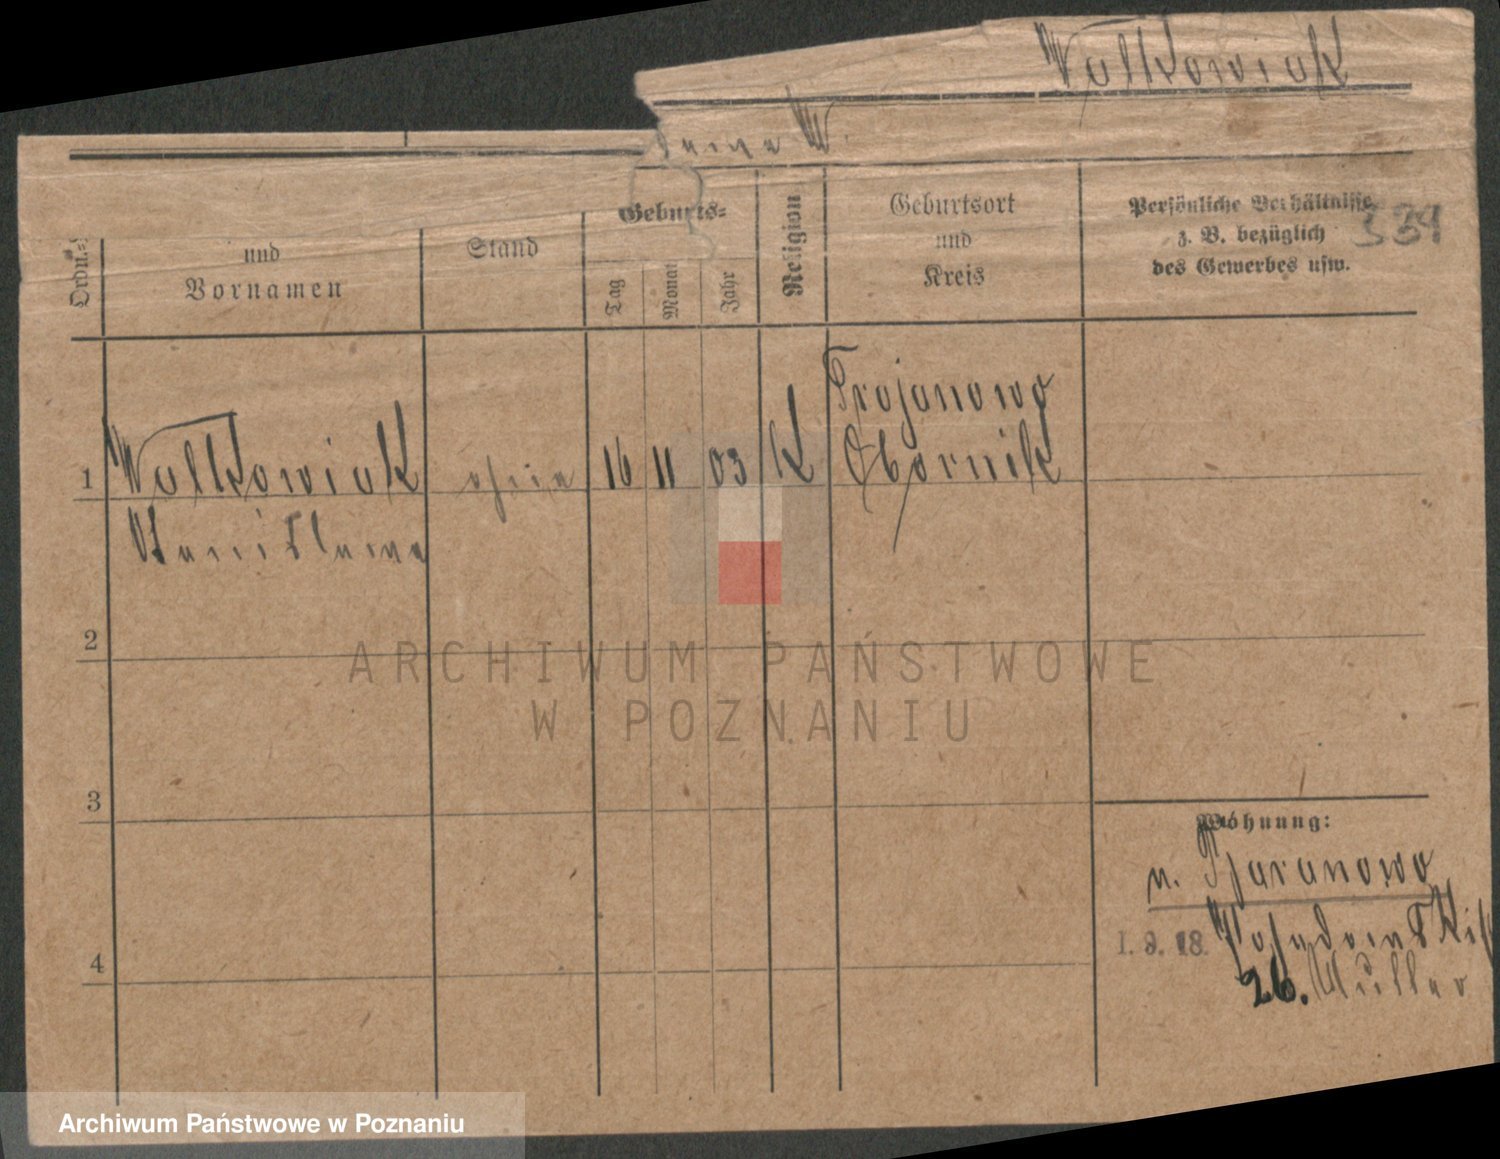 Walkowiak
Ordn.=
und
Vornamen
Stand
Geburts=
Tag
Monat
Jahr
Religion
Geburtsort
und
Kreis
Persönliche Verhältnisse
z. B. bezüglich
des Gewerbes usw.
339
1 Walkowiak ohne 16 11 03 K Trojanowo
Obornik
Stanislawa
2
3
4
Wohnung:
1. 9. 18.
26. Müller
ARCHIWUM PAŃSTWOWE
W POZNANIU
Archiwum Państwowe w Poznaniu